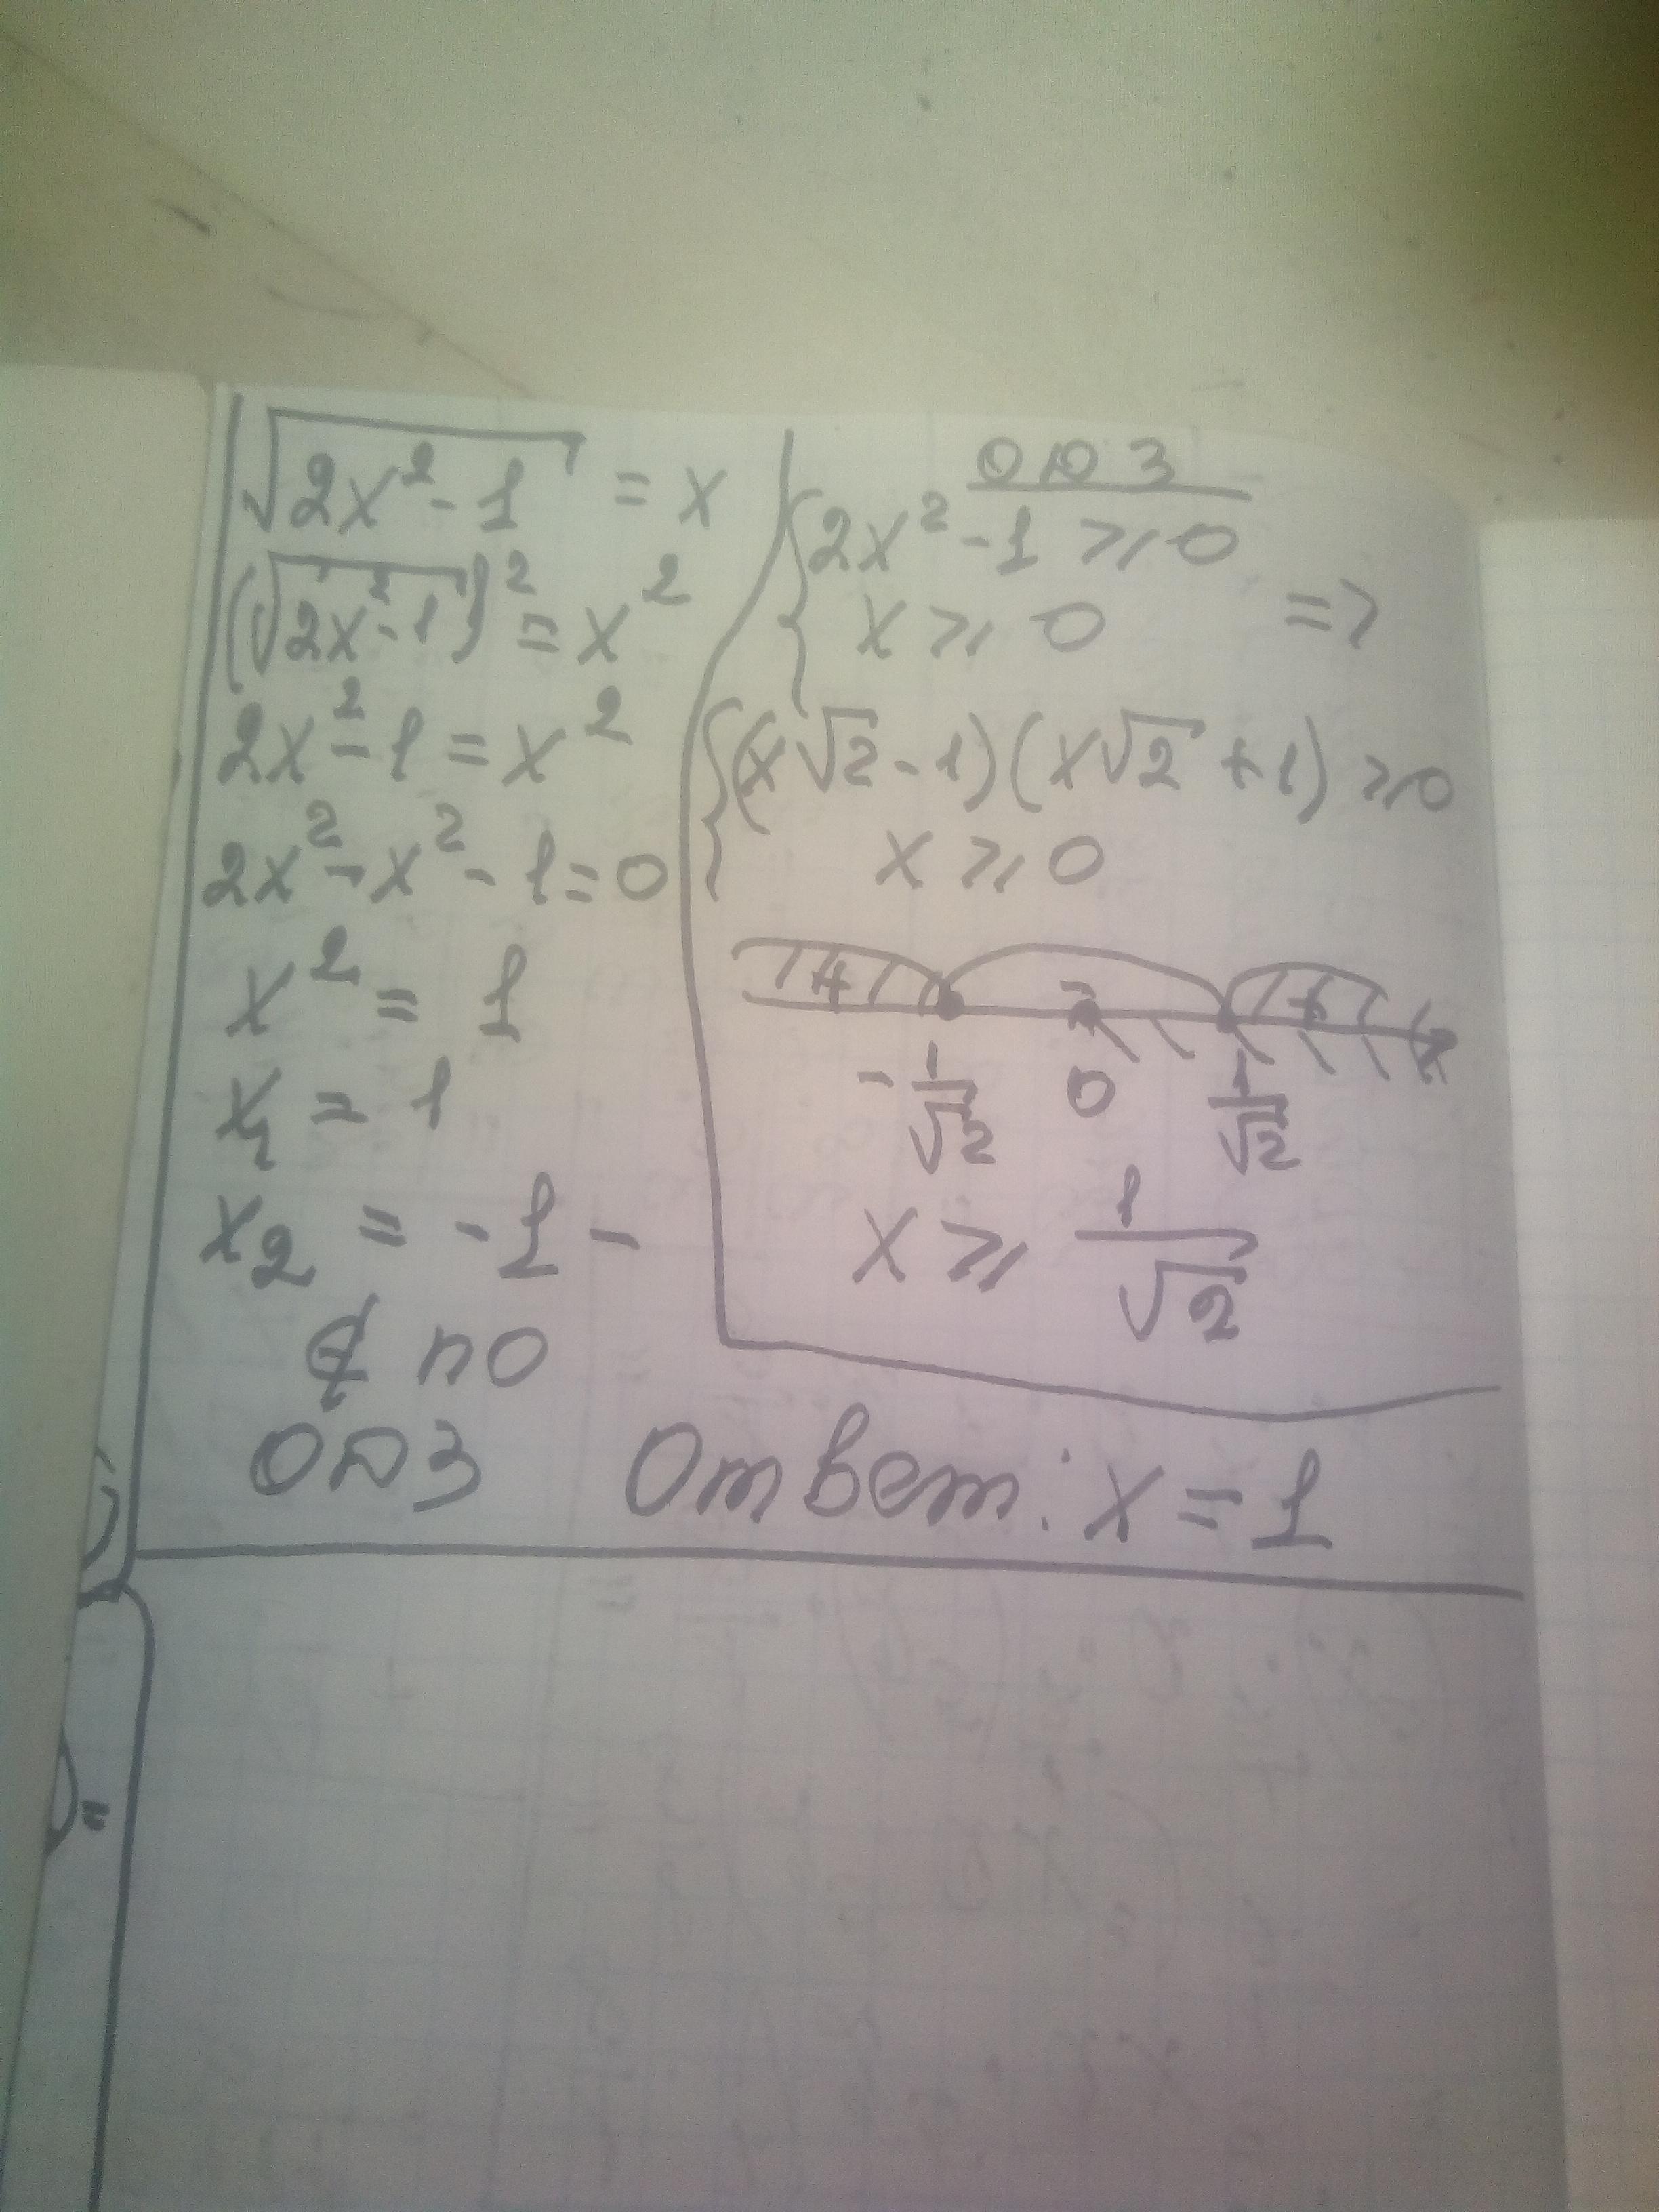 √(2x² - 1) = x
(√(2x² - 1))² = x²
2x² - 1 = x²
2x² - x² - 1 = 0
x² = 1
x₁ = 1
x₂ = -1 -
∉ по
ОДЗ
ОДЗ
{ 2x² - 1 ⩾ 0
x ⩾ 0 =>
{ (x√2 - 1)(x√2 + 1) ⩾ 0
x ⩾ 0
+ - + x
-1/√2 0 1/√2
x ⩾ 1/√2
Ответ: x = 1
=